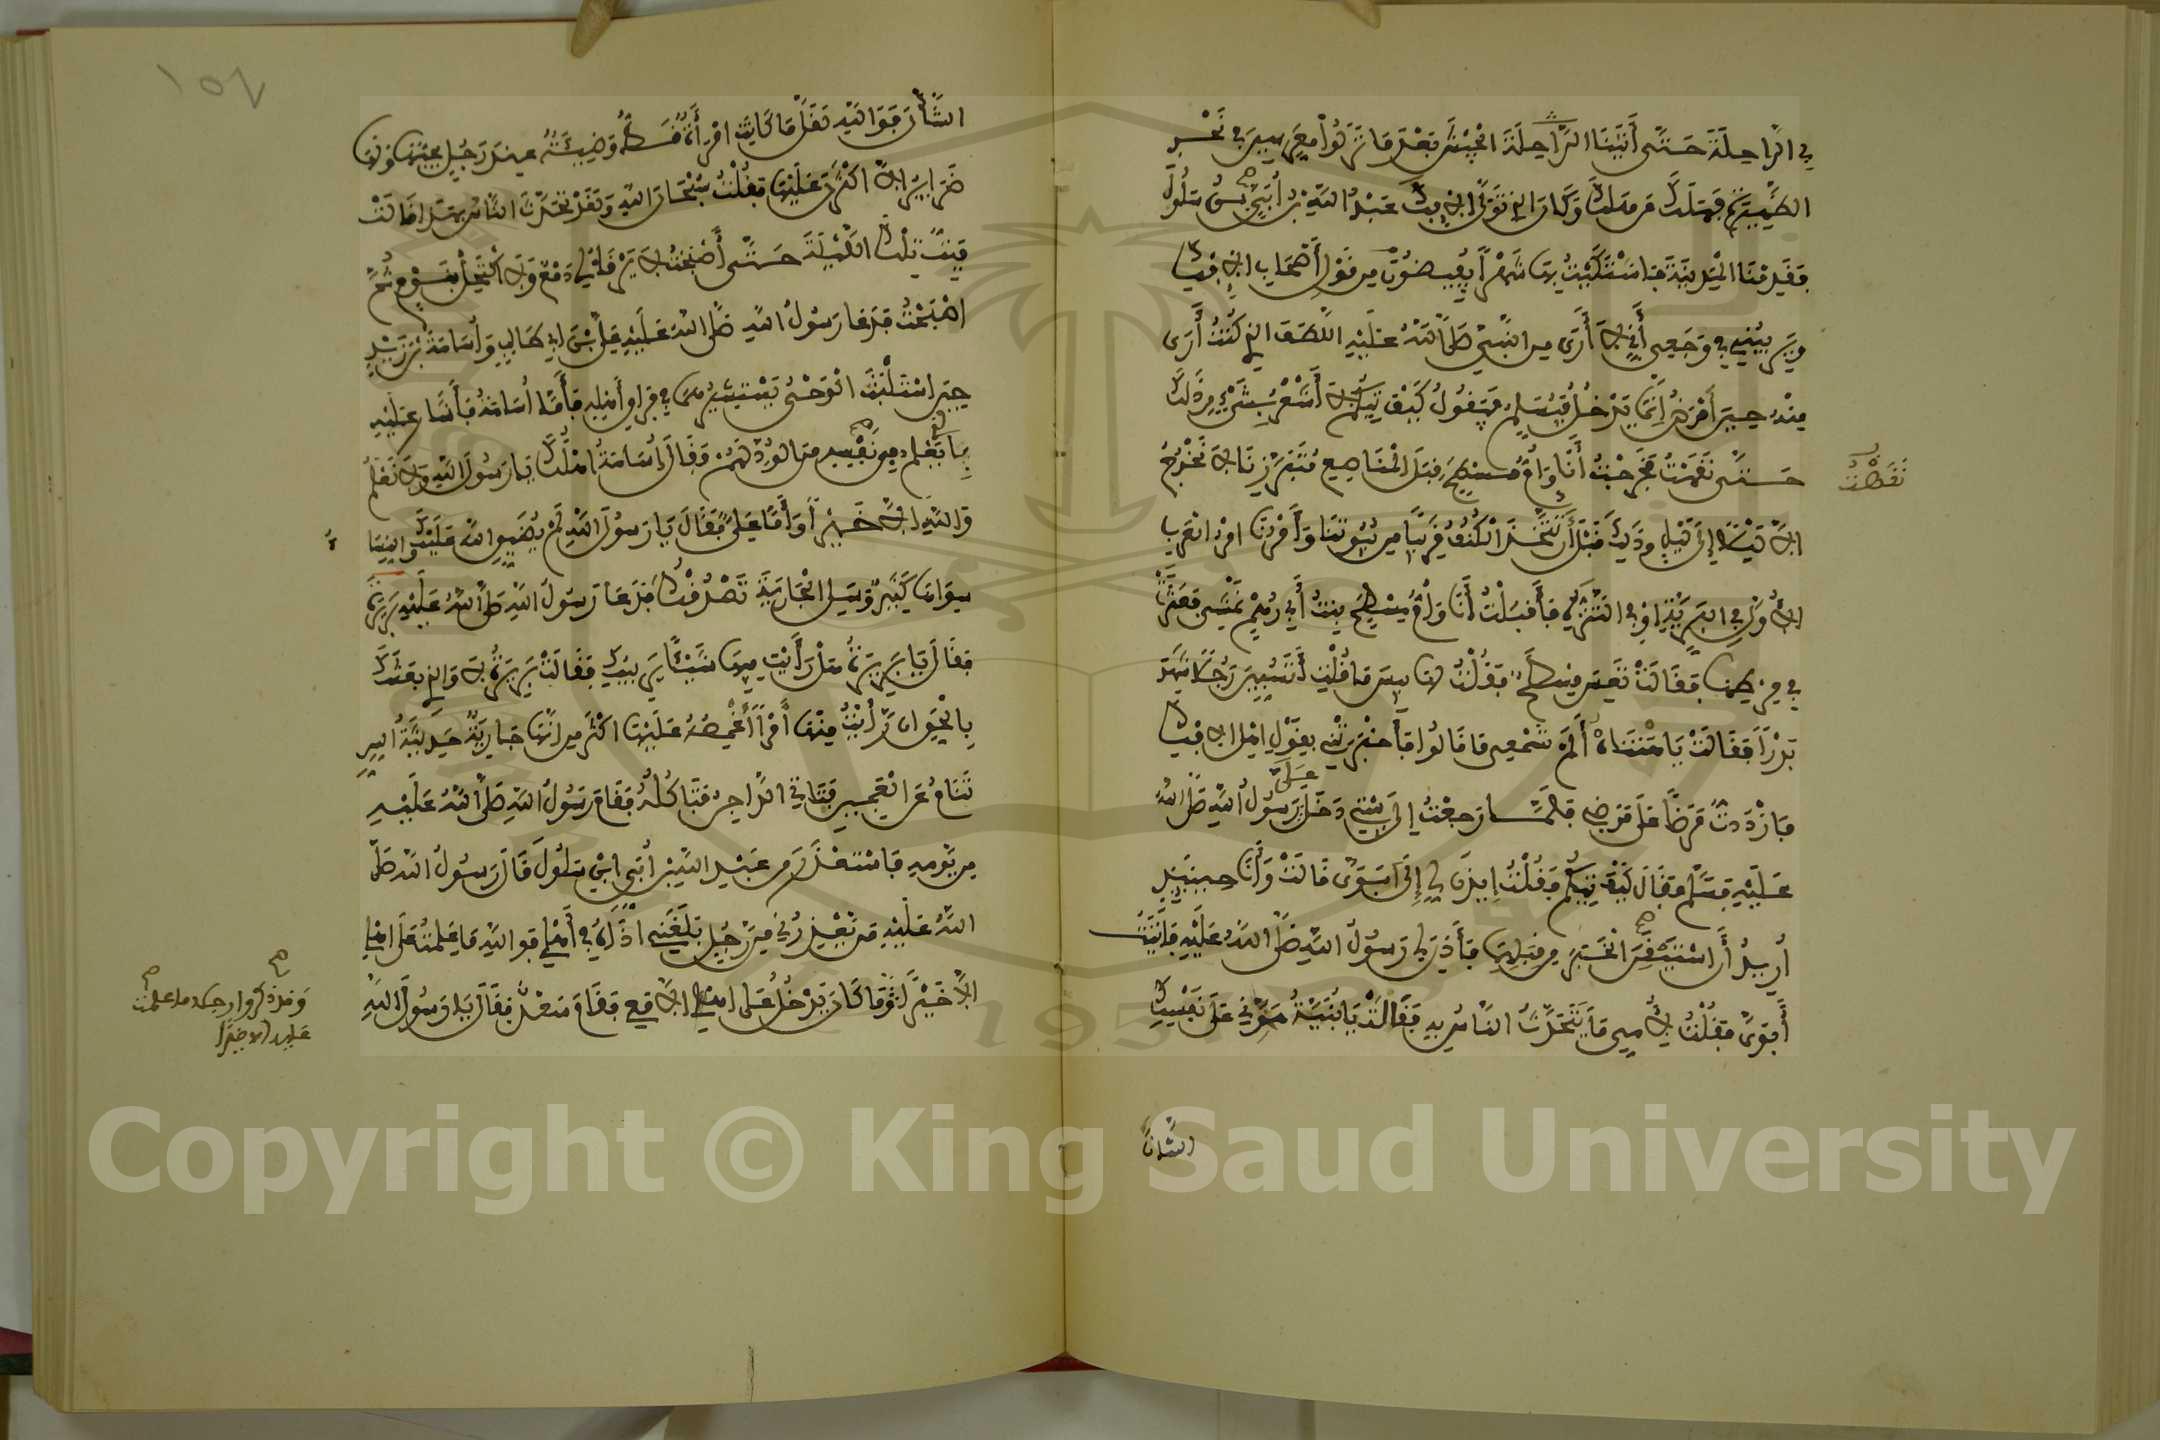 بي الراحلة حتى أتينا الجيش بعد ما نزلوا معرسين في نحر
الظهيرة فهلك من هلك وكان الذي تولى الإفك عبد الله بن أبي بن سلول
فقدمنا المدينة فاشتكيت بها شهرا يفيضون من قول أصحاب الإفك
ويريبني في وجعي أني لا أرى من النبي صلى الله عليه اللطف الذي كنت أرى
منه حين أمرض إنما يدخل فيسلم فيقول كيف تيكم لا أشعر بشيء من ذلك
حتى نقهت فخرجت أنا وأم مسطح قبل المناصع متبرزنا لا نخرج
نقهت
إلا ليلا إلى ليل وذلك قبل أن نتخذ الكنف قريبا من بيوتنا وأمرنا أمر العرب
الأول في البرية أو في التنزه فأقبلت أنا وأم مسطح بنت أبي رهم نمشي فعثرت
في مرطها فقالت تعس مسطح فقلت لها بيس ما قلت أتسبين رجلا شهد
بدرا فقالت يا هنتاه ألم تسمعي ما قالوا فأخبرتني بقول أهل الإفك
فازددت مرضا على مرضي فلما رجعت إلى بيتي دخل علي رسول الله صلى الله
عليه فسلم فقال كيف تيكم فقلت ايذن لي إلى أبوي قالت وأنا حينئذ
أريد أن أستيقن الخبر من قبلهما فأذن لي رسول الله صلى الله عليه فأتيت
أبوي فقلت لأمي ما يتحدث الناس به فقالت يا بنية هوني على نفسك
الشأن
١٥٦
الشأن فوالله لقل ما كانت امرأة قط وضيئة عند رجل يحبها ولها
ضراير إلا أكثرن عليها فقلت سبحان الله ولقد تحدث الناس بهذا قالت
فبت تلك الليلة حتى أصبحت لا يرقأ لي دمع ولا أكتحل بنوم ثم
أصبحت فدعا رسول الله صلى الله عليه علي بن أبي طالب وأسامة بن زيد
حين استلبث الوحي يستشيرهما في فراق أهله فأما أسامة فأشار عليه
بما يعلم في نفسه من الود لهم فقال أسامة أهلك يا رسول الله ولا نعلم
والله إلا خيرا وأما علي فقال يا رسول الله لم يضيق الله عليك والنسا
سواها كثير وسل الجارية تصدقك فدعا رسول الله صلى الله عليه بريرة
فقال يا بريرة هل رأيت فيها شيئا يريبك فقالت بريرة لا والذي بعثك
بالحق إن رأيت منها أمرا أغمصه عليها أكثر من أنها جارية حديثة السن
تنام عن العجين فتاتي الداجن فتاكله فقام رسول الله صلى الله عليه
من يومه فاستعذر من عبد الله بن أبي ابن سلول قال رسول الله صلى
الله عليه من يعذرني من رجل بلغني أذاه في أهلي فوالله ما علمت على أهلي
إلا خيرا وما كان يدخل على أهلي إلا معي فقام سعد فقال يا رسول الله
وقد ذكروا رجلا ما علمت
عليه إلا خيرا
Copyright © King Saud University
1957